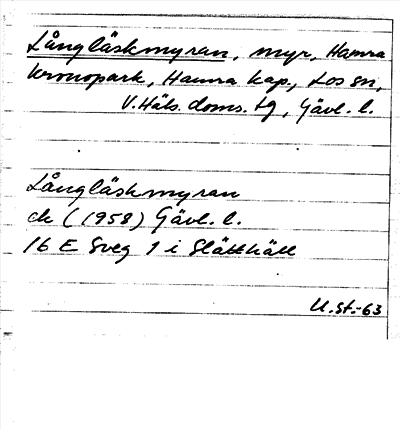 Långläskmyran, myr, Hamra
kronopark, Hamra kap., Los sn,
V.Häls. doms. tg, Gävl. l.
Långläskmyran
ek (1958) Gävl. l.
16 E Sveg 1 i Slätthäll
U.St.-63